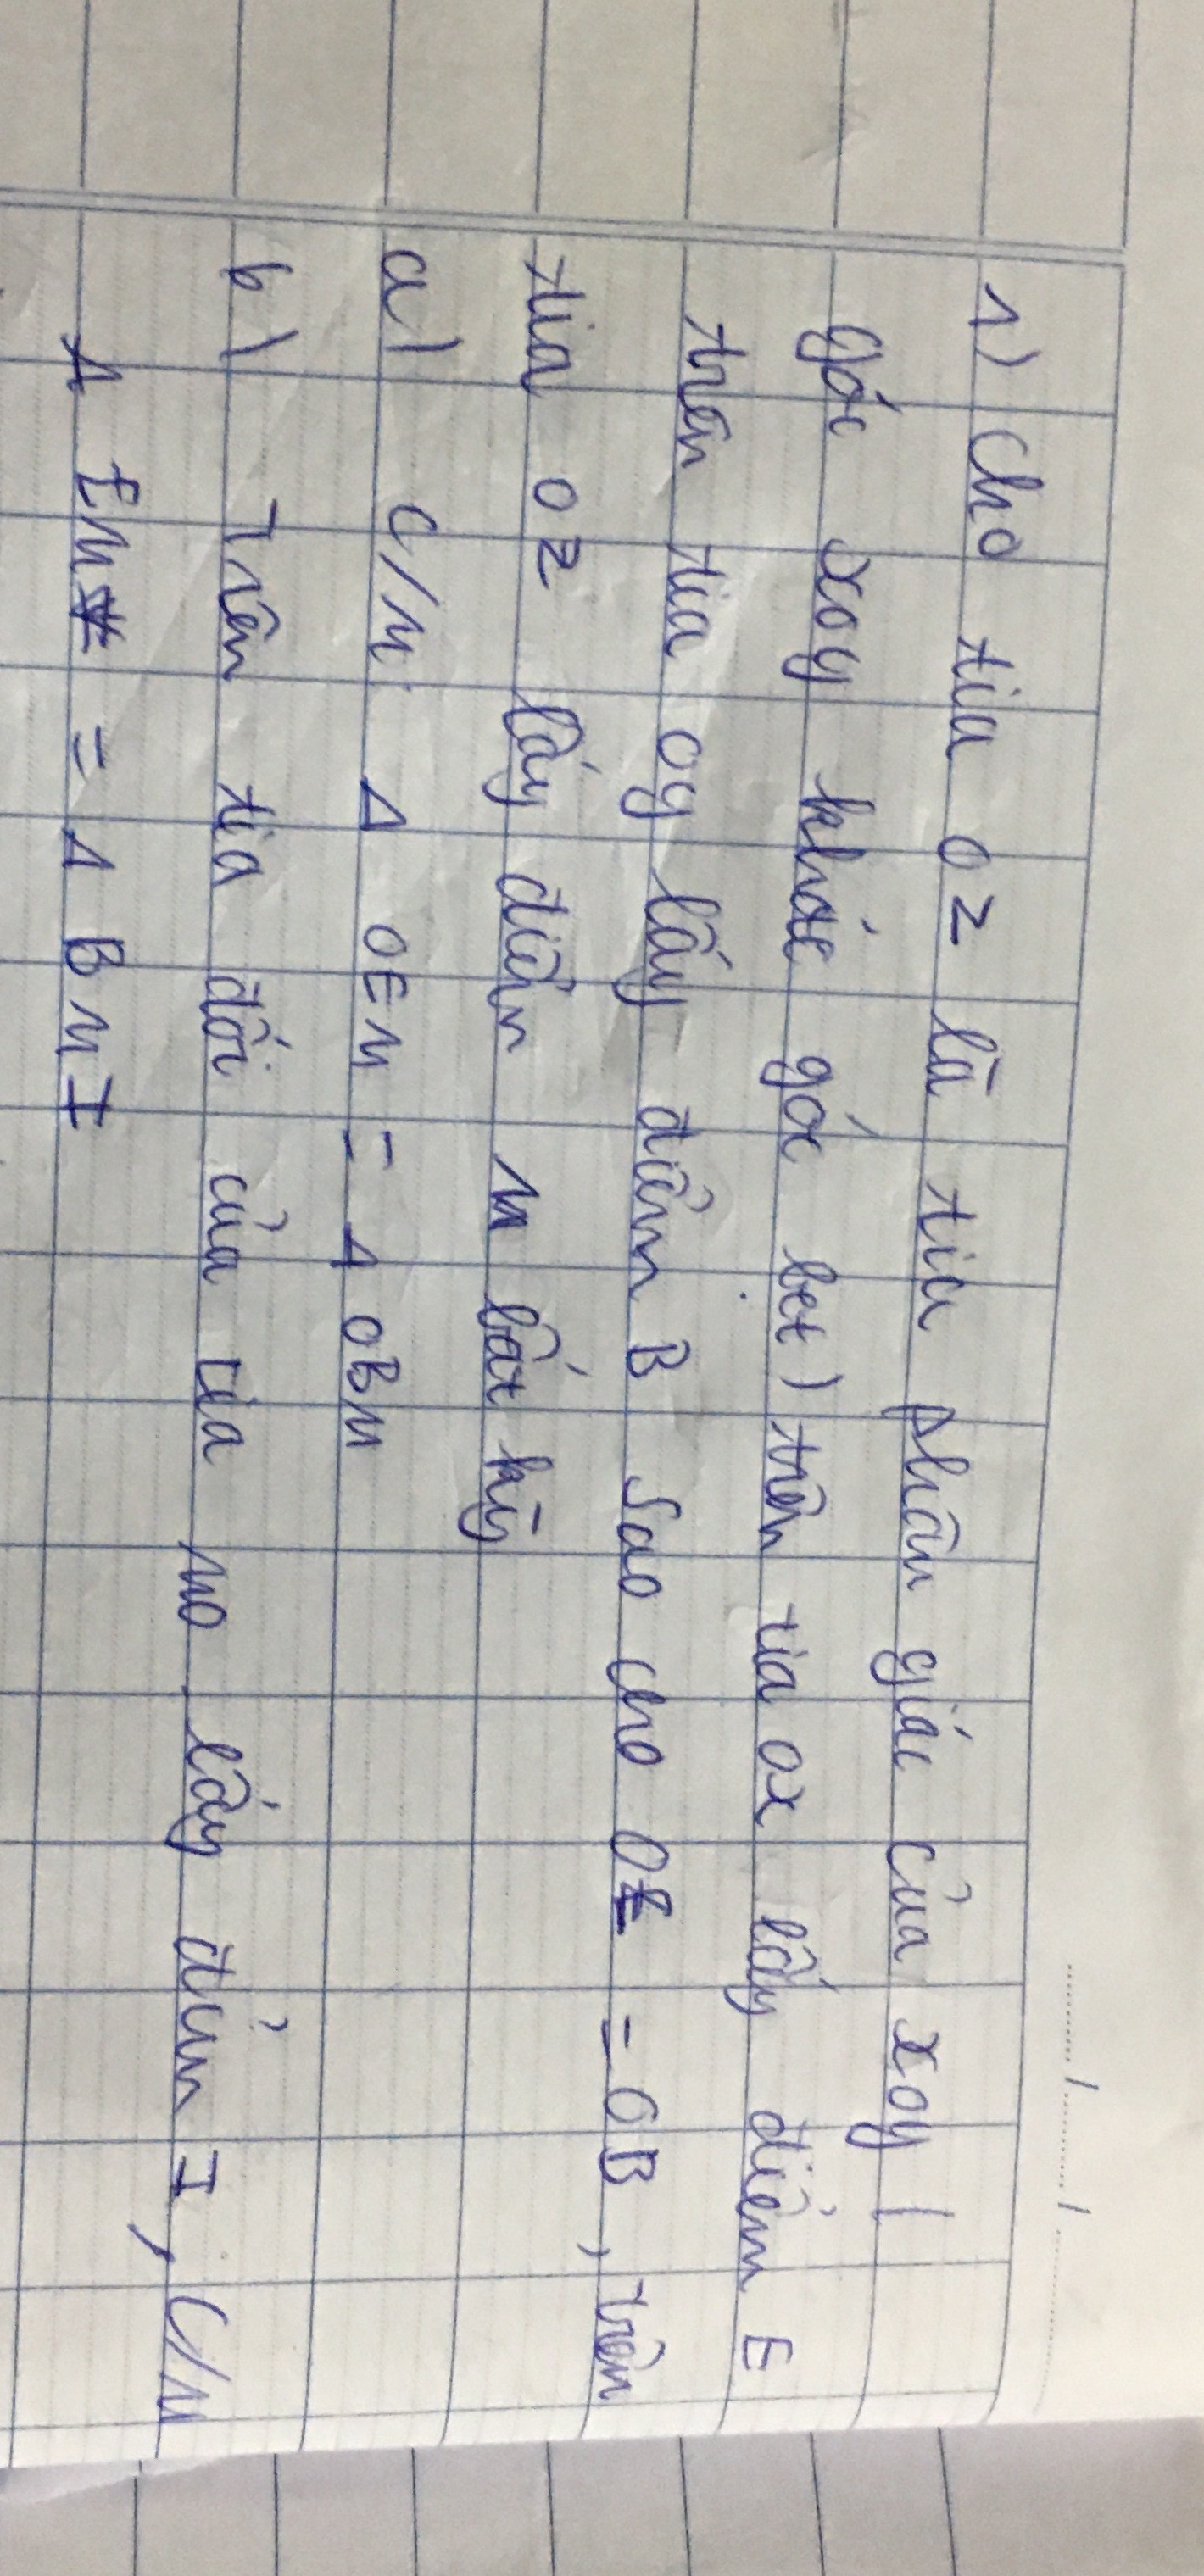 1) Cho tia Oz là tia phân giác của xoy (
góc xoy khác góc bẹt) trên tia ox lấy điểm E
trên tia oy lấy điểm B sao cho OE = OB, trên
tia oz lấy điểm M bất kỳ
a) C/M Δ OEM = Δ OBM
b) Trên tia đối của tia MO lấy điểm I, C/M
Δ EMI = Δ BMI